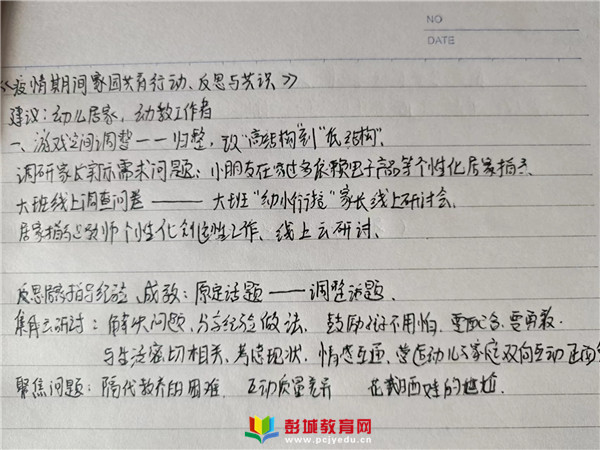 NO
DATE
《疫情期间家园共育行动、反思与共识》
建议：幼儿居家，幼教工作者
一、游戏空间调整——归整，改"高结构"到"低结构"。
调研家长实际需求问题：小朋友在家过多依赖电子产品等个性化居家指导
大班线上调查问卷——大班"幼小衔接"家长线上研讨会．
居家指导教师个性化创造性工作、线上云研讨．
反思居家指导经验、成效：原定话题——调整话题．
集体云研讨：解决问题、分享经验做法，鼓励孩子不用怕，要面对，要勇敢．
与生活密切相关、考虑现状，情感互通，营造幼儿与家庭双向互动
聚焦问题：隔代教养的困难 互动质量差异 花式晒娃的尴尬．
彭城教育网
www.pcjyedu.cn